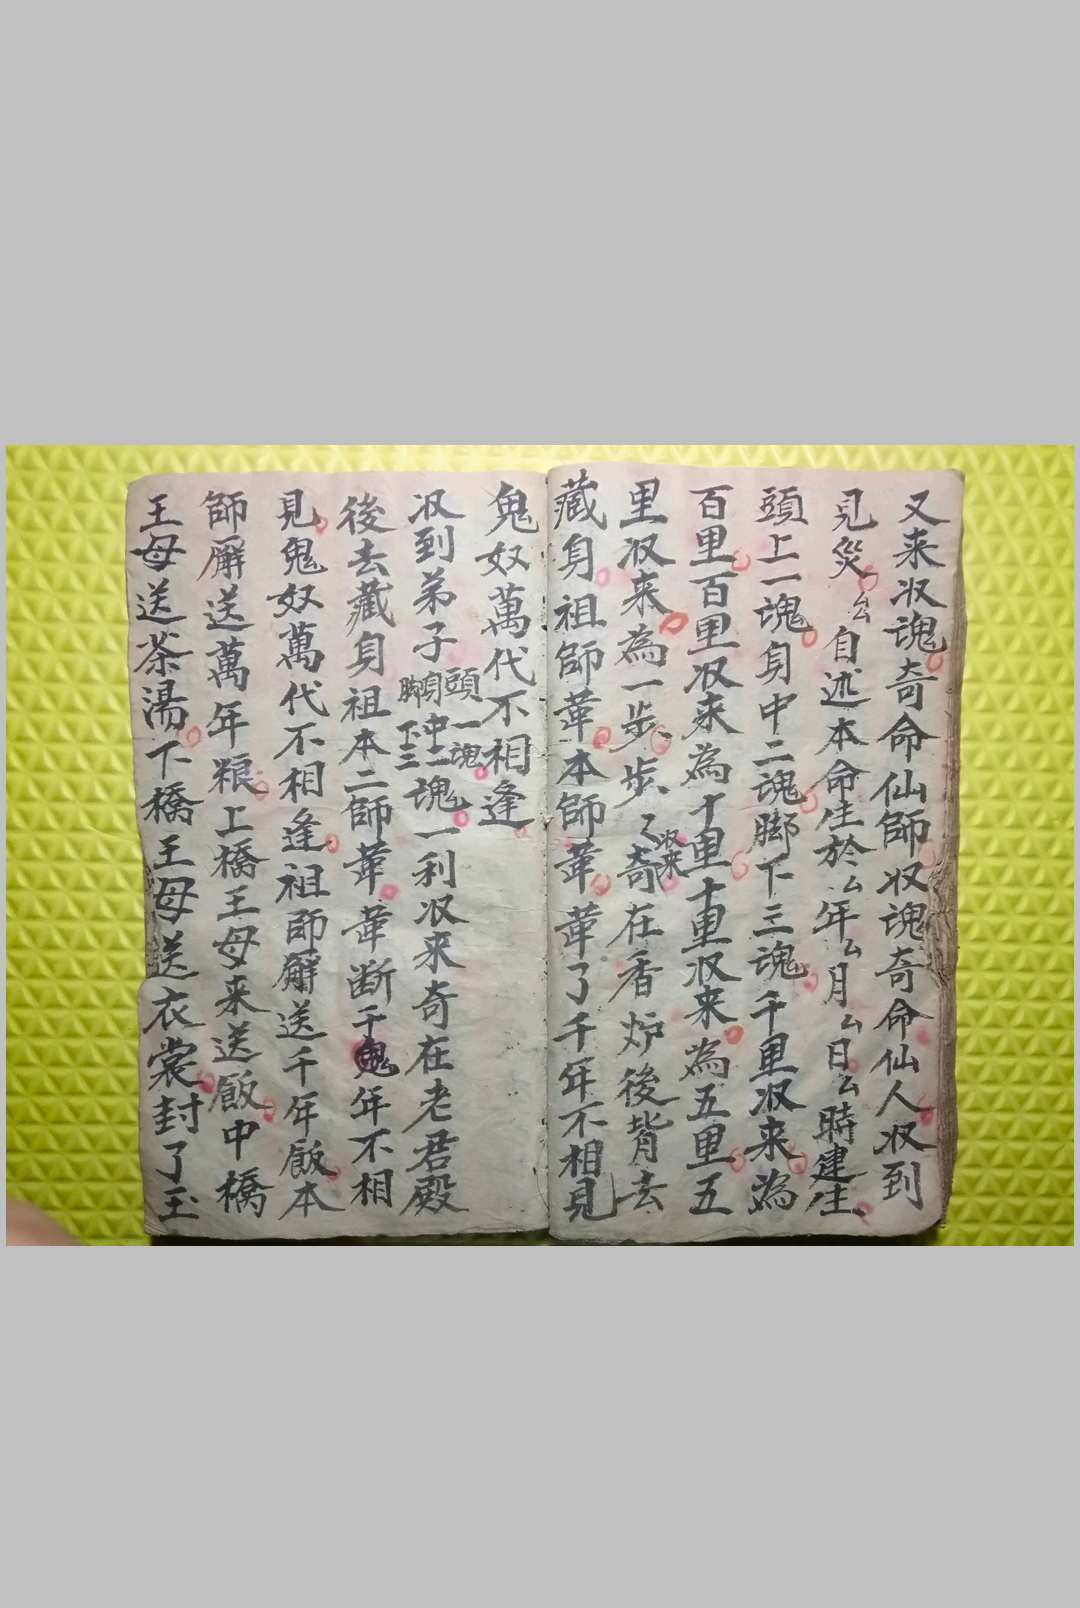 又来収魂奇命仙師収魂奇命仙人収到
児災厶自述本命生於厶年厶月厶日厶時建生
頭上一魂身中二魂脚下三魂千里収来為
百里百里収来為十里十里収来為五里五
里収来為一步步了収来奇在香炉後背去
藏身祖師葦本師葦葦了千年不相見
鬼奴萬代不相逢
収到弟子頭一魂身中二脚下三魂一利収来奇在老君殿
後去藏身祖本二師葦葦断千鬼年不相
見鬼奴萬代不相逢祖師解送千年飯本
師解送萬年粮上橋王母来送飯中橋
王母送茶湯下橋王母送衣裳封了玉